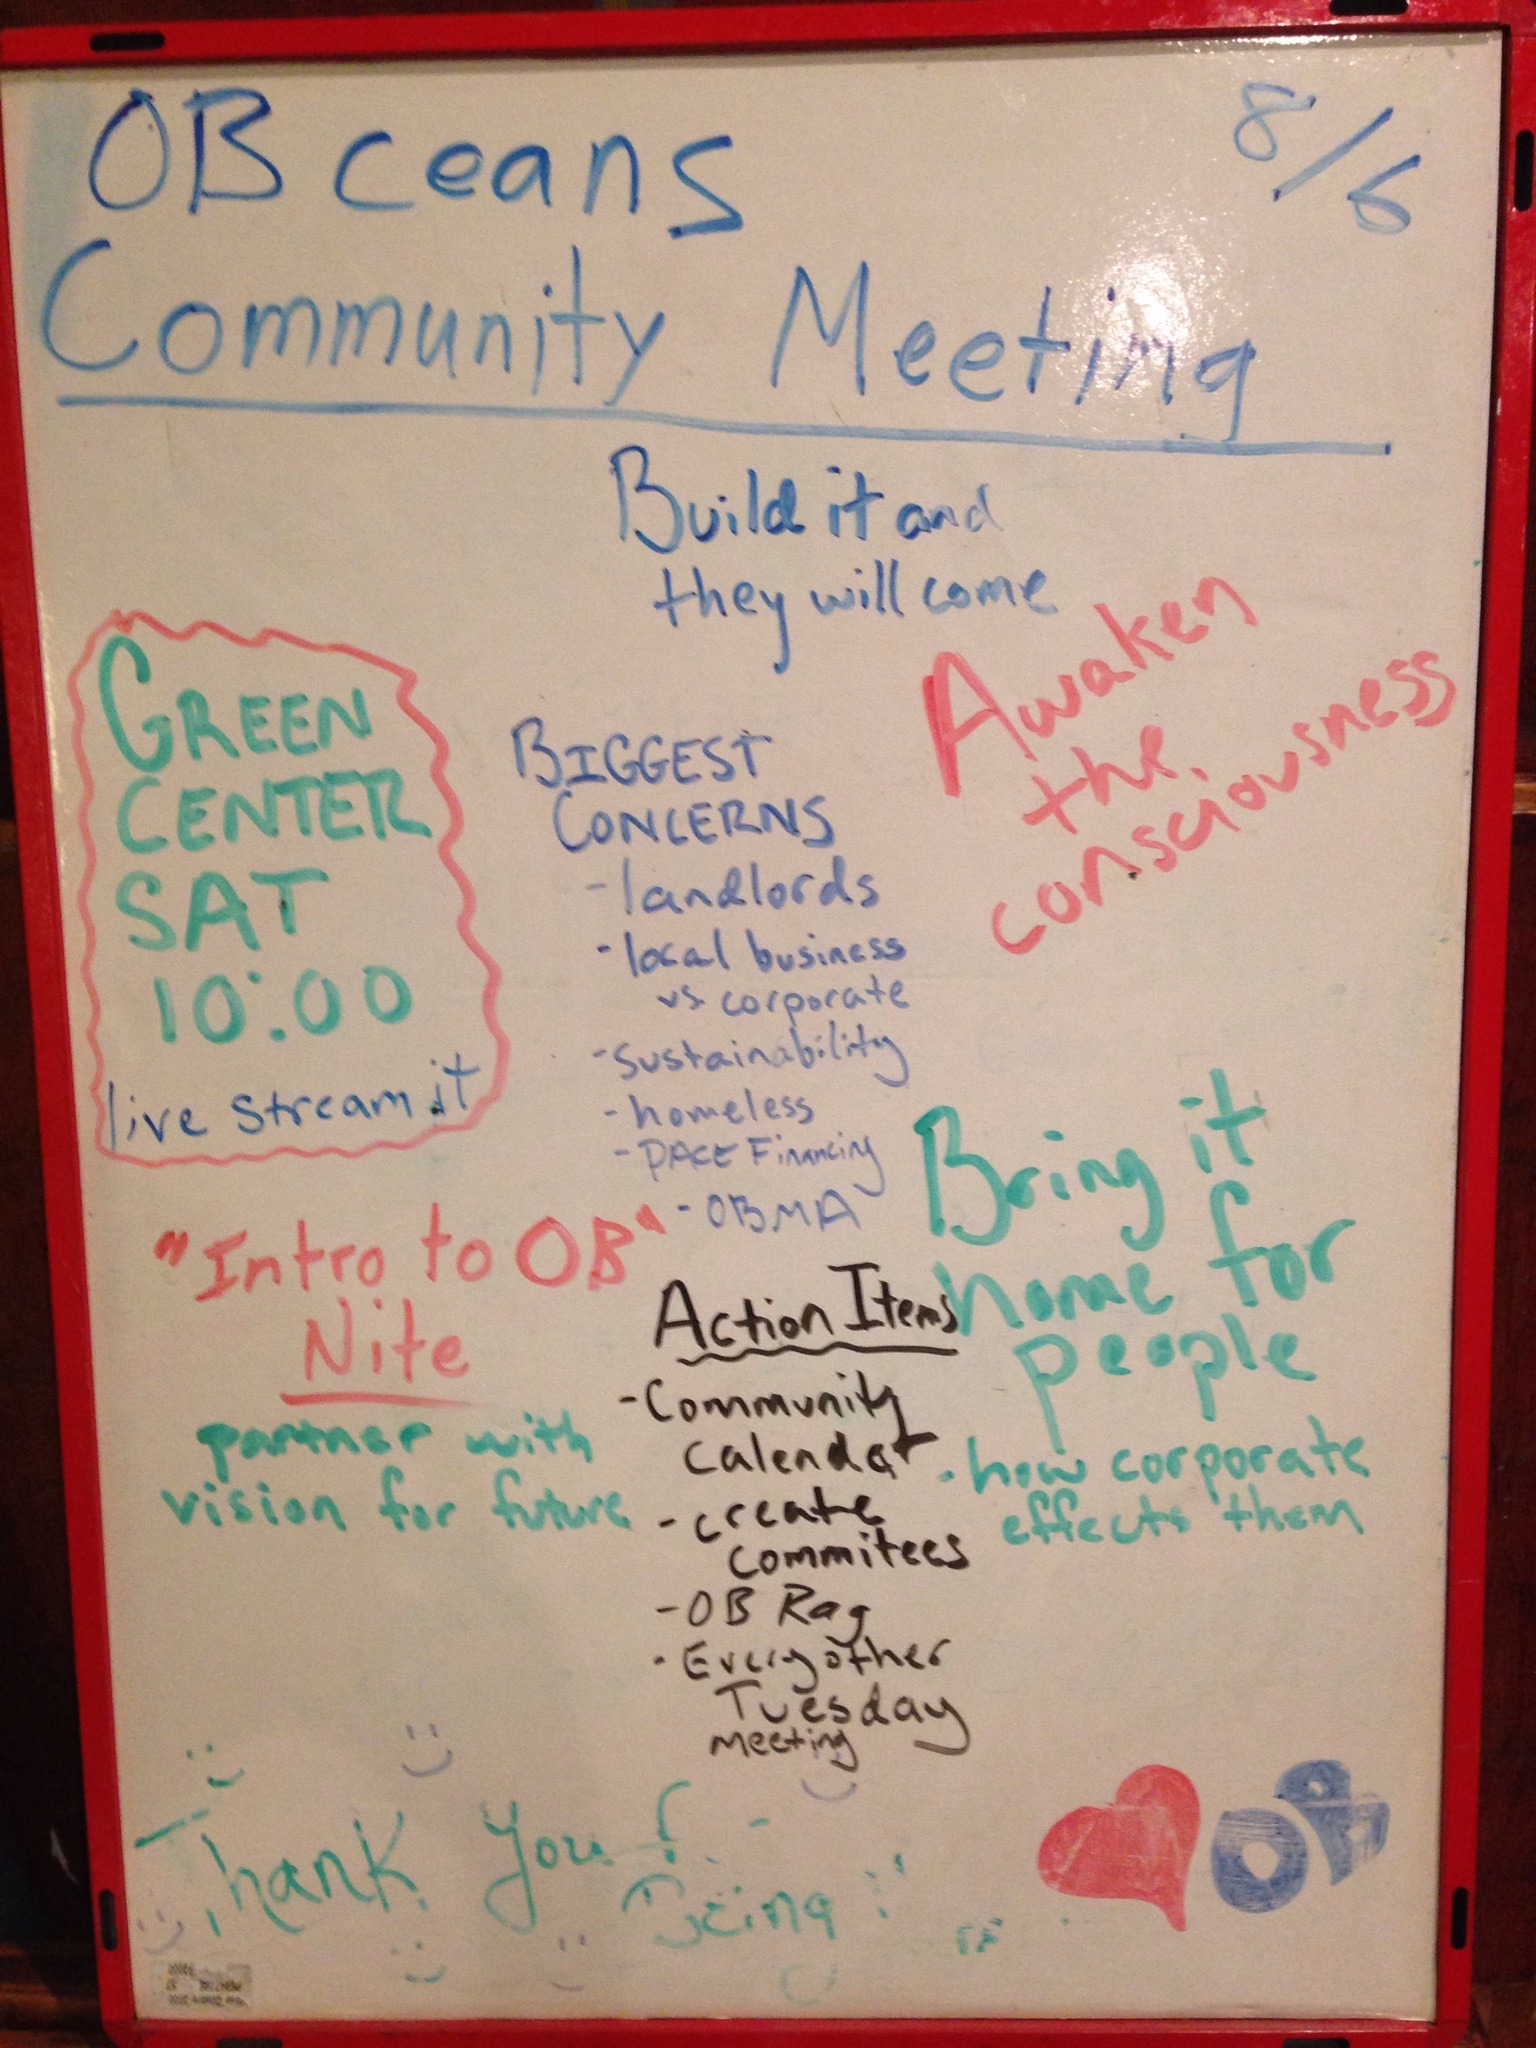 OBceans
8/6
Community Meeting
Build it and
they will come
Awaken
the
consciousness
GREEN
CENTER
SAT
10:00
live stream it
BIGGEST
CONCERNS
- landlords
- local business
vs corporate
- sustainability
- homeless
- PACE Financing
- OBMA
Bring it
home for
people
- how corporate
effects them
"Intro to OB"
Nite
partner with
vision for future
Action Items
- Community
Calendar
- create
commitees
- OB Rag
- Every other
Tuesday
meeting
Thank You
Being
OB